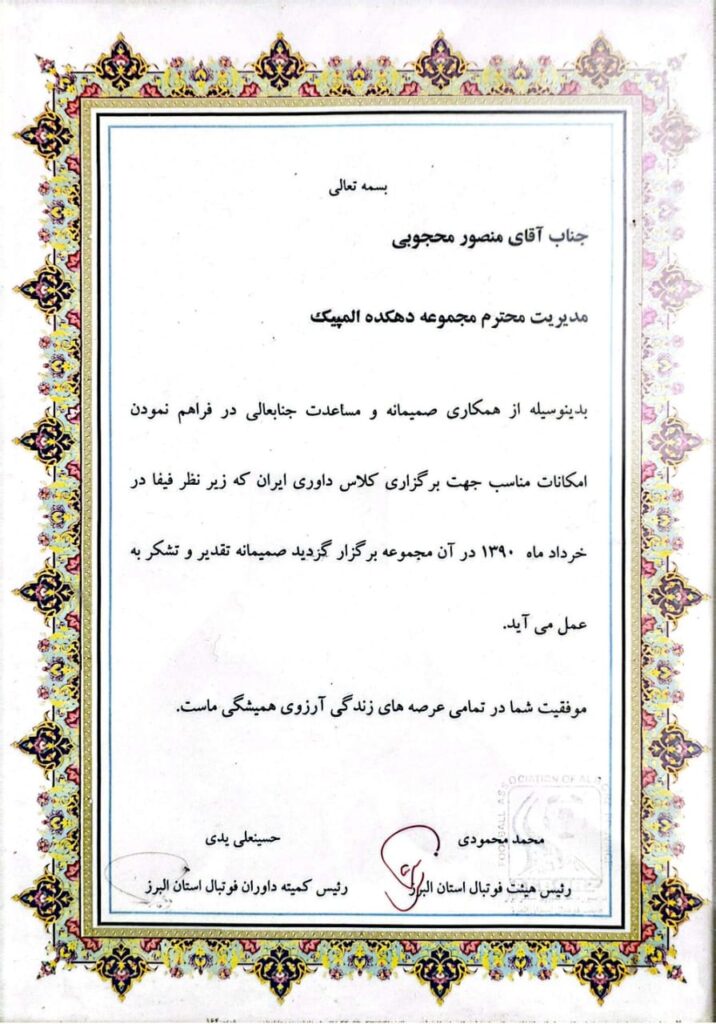 بسمه تعالی
جناب آقای منصور محجوبی
مدیریت محترم مجموعه دهکده المپیک
بدینوسیله از همکاری صمیمانه و مساعدت جنابعالی در فراهم نمودن
امکانات مناسب جهت برگزاری کلاس داوری ایران که زیر نظر فیفا در
خرداد ماه ۱۳۹۰ در آن مجموعه برگزار گزدید صمیمانه تقدیر و تشکر به
عمل می آید.
موفقیت شما در تمامی عرصه های زندگی آرزوی همیشگی ماست.
محمد محمودی
رئیس هیئت فوتبال استان البرز
حسینعلی یدی
رئیس کمیته داوران فوتبال استان البرز